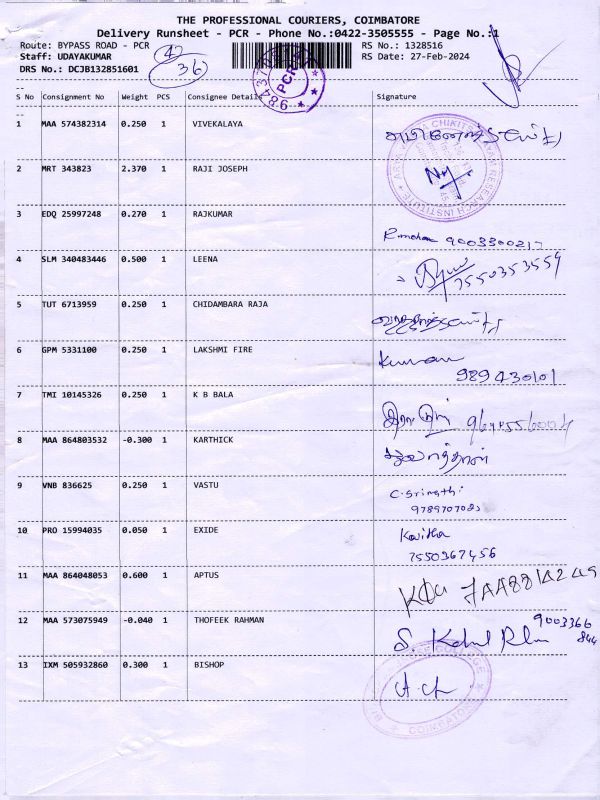 THE PROFESSIONAL COURIERS, COIMBATORE
Delivery Runsheet - PCR - Phone No.:0422-3505555 - Page No.:1
Route: BYPASS ROAD - PCR RS No.: 1328516
Staff: UDAYAKUMAR RS Date: 27-Feb-2024
DRS No.: DCJB132851601
36
PCR
S No Consignment No Weight PCS Consignee Details Signature
1 MAA 574382314 0.250 1 VIVEKALAYA
2 MRT 343823 2.370 1 RAJI JOSEPH
RESEARCH INSTITUTE
3 EDQ 25997248 0.270 1 RAJKUMAR
4 SLM 340483446 0.500 1 LEENA
7550353559
5 TUT 6713959 0.250 1 CHIDAMBARA RAJA
6 GPM 5331100 0.250 1 LAKSHMI FIRE
Kumar
989430101
7 TMI 10145326 0.250 1 K B BALA
8 MAA 864803532 -0.300 1 KARTHICK
9 VNB 836625 0.250 1 VASTU
10 PRO 15994035 0.050 1 EXIDE
Kavitha
7550367456
11 MAA 864048053 0.600 1 APTUS
12 MAA 573075949 -0.040 1 THOFEEK RAHMAN
9003366
844
13 IXM 505932860 0.300 1 BISHOP
COIMBATORE